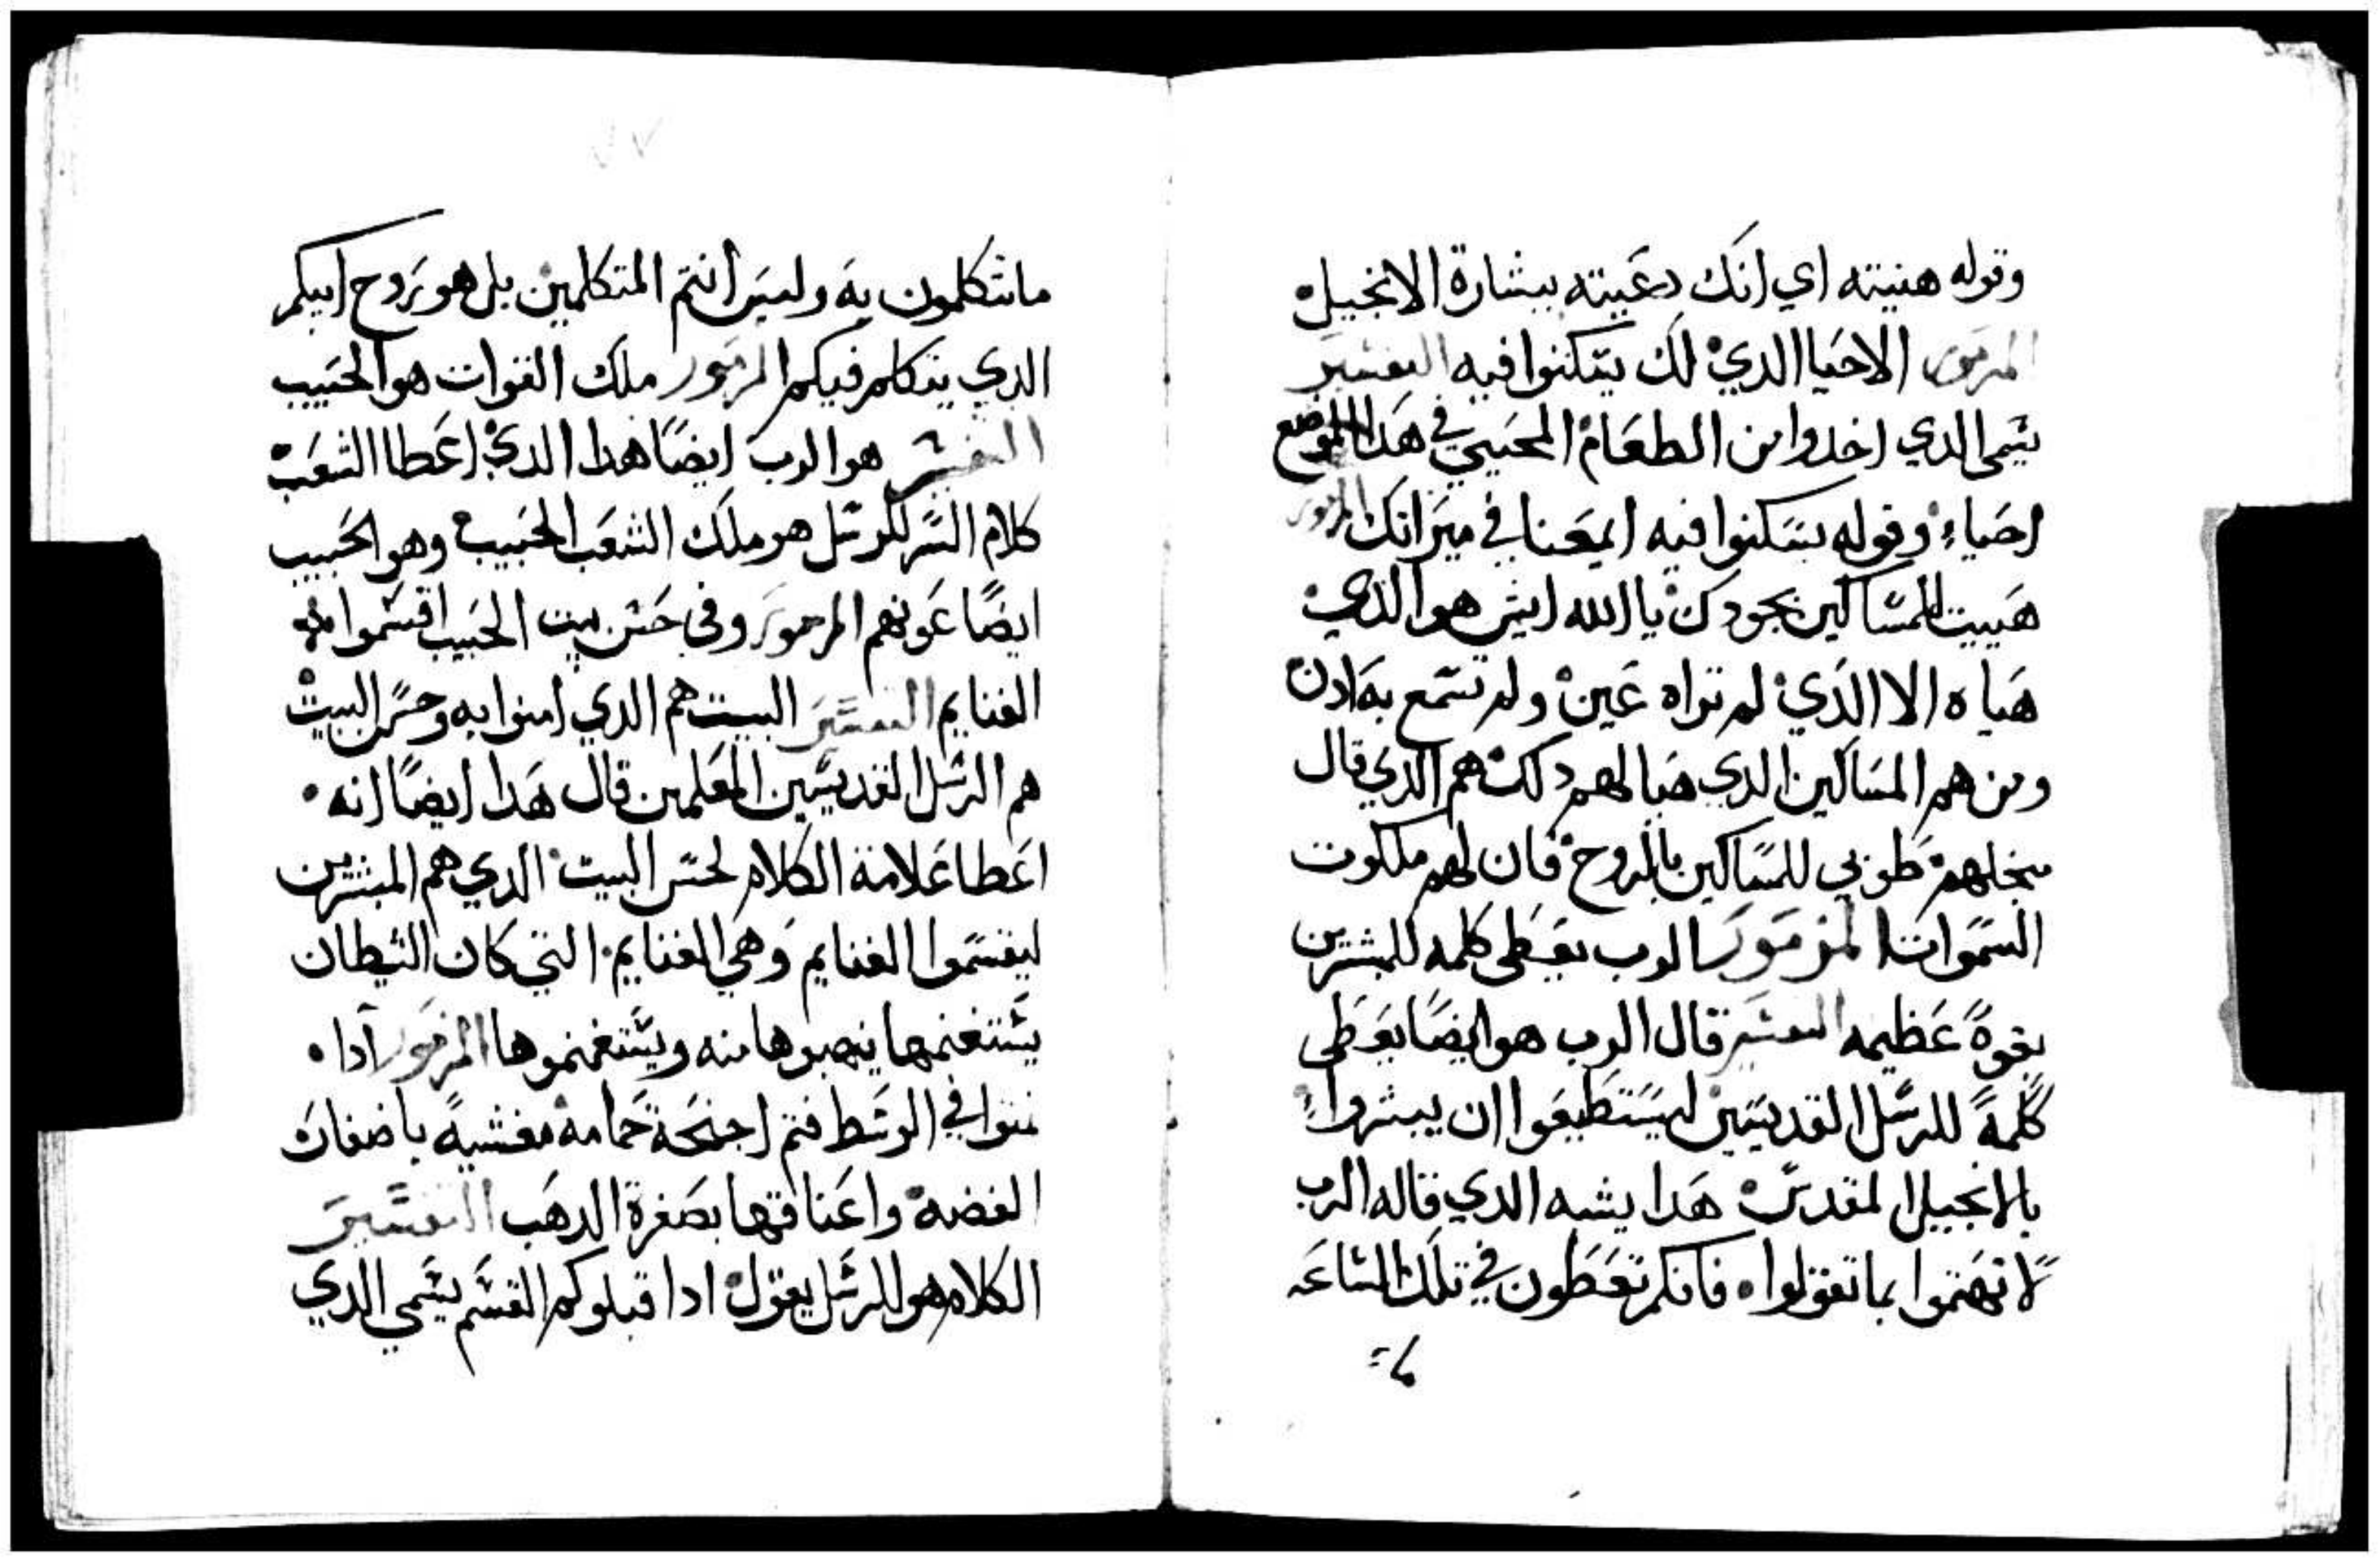 وقوله هنيته اي انك دعيته ببشارة الانجيل
المزمور الاحيا الدي لك يسكنوا فيه التفسير
يسمى الدي اخدوا من الطعام المحيي في هدا الموضع
احياء وقوله يسكنوا فيه ايمعنا في ميراتك المزمور
هييت للمساكين بجودك يا الله ايش هو الدي
هياه الا الدي لم تراه عين ولم تسمع به ادن
ومن هم المساكين الدي هيا لهم دلك هم الدي قال
من اجلهم طوبي للمساكين بالروح فان لهم ملكوت
السموات المزمور الرب يعطى كلمه للمبشرين
بقوة عظيمه التفسير قال الرب هو ايضا يعطى
كلمة للرسل القديسين ليستطيعوا ان يبشروا
بالانجيل المقدس هدا يشبه الدي قاله الرب
لا تهتموا بما تقولوا فانكم تعطون في تلك الساعه
ما تتكلمون به وليس انتم المتكلمين بل هو روح ابيكم
الدي يتكلم فيكم المزمور ملك القوات هو الحبيب
التفسير هو الرب ايضا هدا الدي اعطا الشعب
كلام السر للرسل هو ملك الشعب الحبيب وهو الحبيب
ايضا عونهم المزمور وفى حسن بيت الحبيب اقسموا
الغنايم التفسير البيت هم الدي امنوا به وحسن البيت
هم الرسل القديسين المعلمين قال هدا ايضا انه
اعطا علامة الكلام لحسن البيت الدي هم المبشرين
ليقسموا الغنايم وهي الغنايم التي كان الشيطان
يستغنمها ينهبوها منه ويستغنموها المزمور آدا
نمتوا في الوسط فتم اجنحة حمامه مغشية باضفات
الفضه واعناقها بصفرة الدهب التفسير
الكلام هو للرسل يقول ادا قبلوكم القسم يسمى الدي